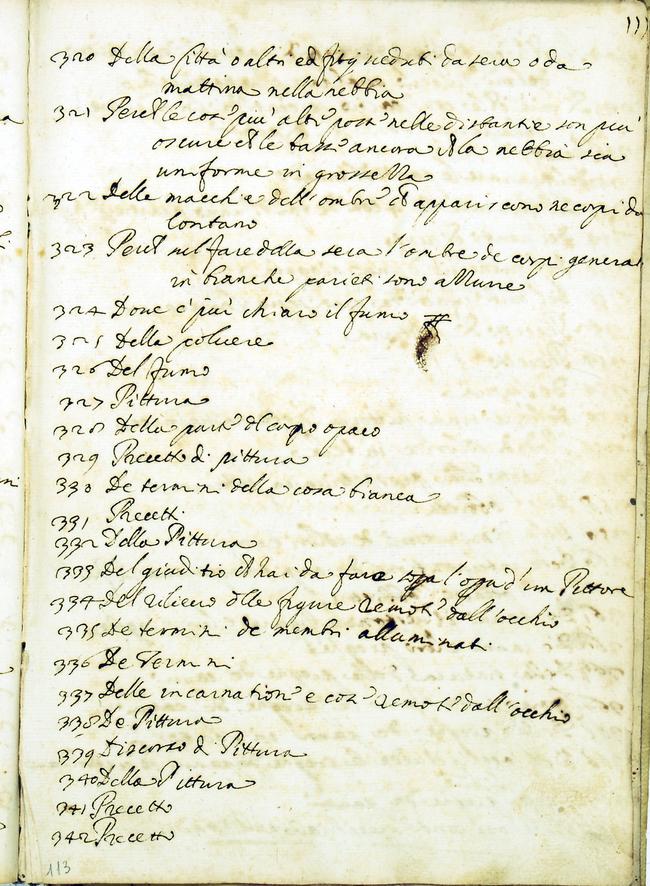 111
320 Della Città o altri edifitij veduti da sera o da
mattina nella nebbia
321 Perche le cose più alte poste nelle distantie son più
oscure che le basse ancora che la nebbia sia
uniforme in grossezza
322 Delle macchie dell'ombre che appariscono ne corpi da
lontano
323 Perche sul fare della sera l'ombre de corpi generati
in bianche pariete sono azzurre
324 Doue è più chiaro il fumo #
325 Della poluere
326 Del fumo
327 Pittura
328 Della parte del corpo opaco
329 Precetto di pittura
330 De termini della cosa bianca
331 Precetti
332 Della Pittura
333 Del giuditio che hai da fare sopra l'opa d'un Pittore
334 del rilieuo delle figure remote dall'occhio
335 De termini de membri alluminati
336 De Termini
337 Delle incarnatione e cose remote dall'occhio
338 De Pittura
339 Discorso di Pittura
340 Della Pittura
341 Precetto
342 Precetto
113